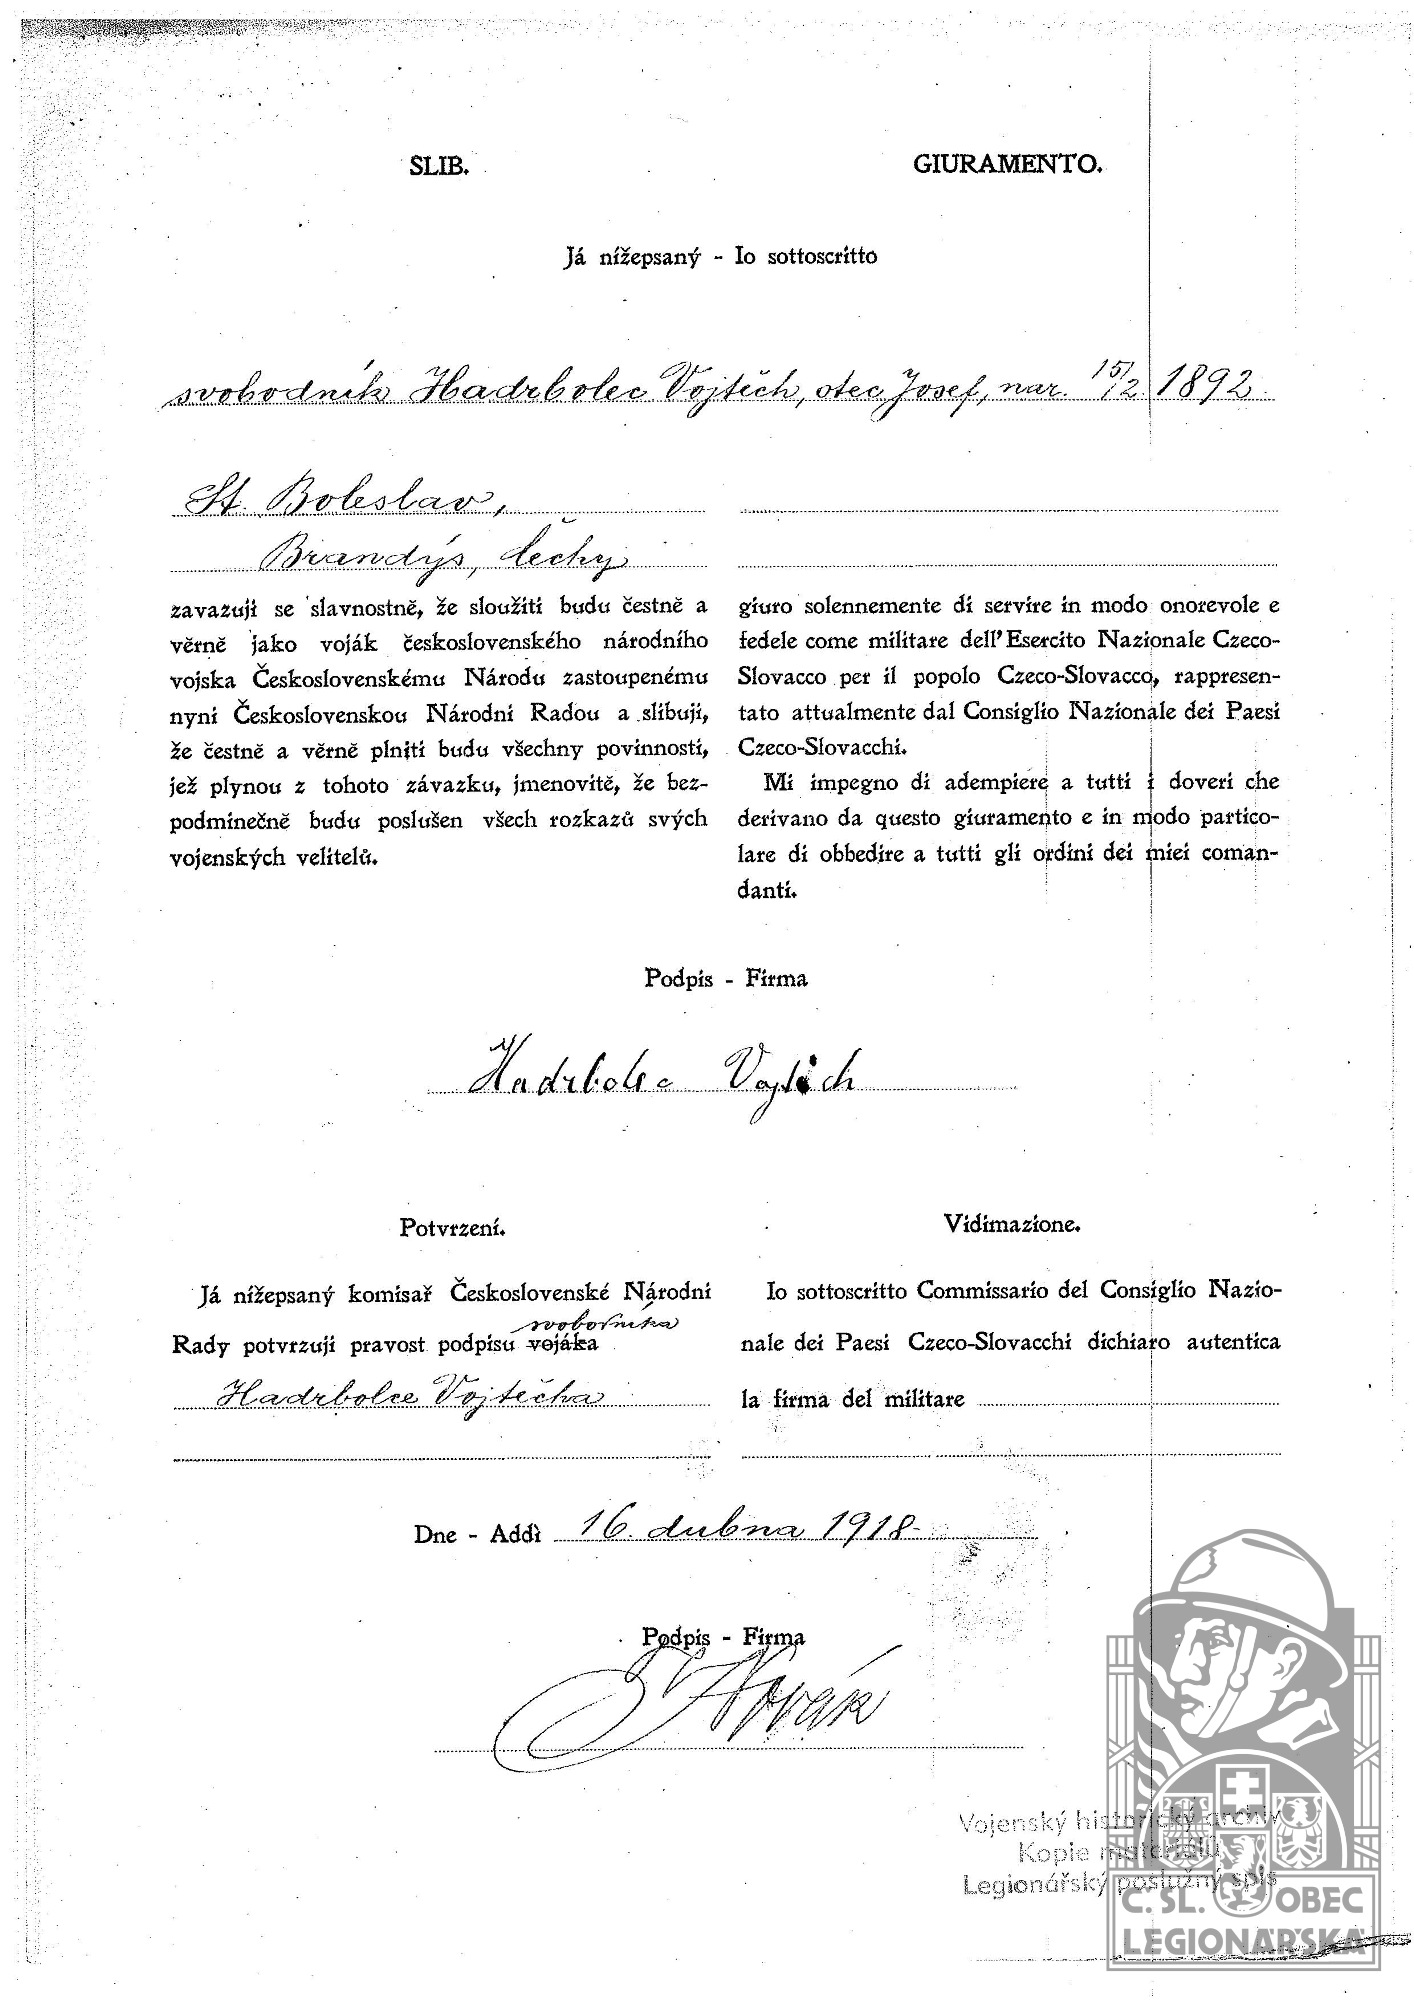 SLIB.
GIURAMENTO.
Já nížepsaný - Io sottoscritto
svobodník Hadrbolec Vojtěch, otec Josef, nar. 15/2 1892.
St. Boleslav,
Brandýs, Čechy
zavazuji se slavnostně, že sloužiti budu čestně a
věrně jako voják československého národního
vojska Československému Národu zastoupenému
nyní Československou Národní Radou a slibuji,
že čestně a věrně plniti budu všechny povinnosti,
jež plynou z tohoto závazku, jmenovitě, že bez-
podmínečně budu poslušen všech rozkazů svých
vojenských velitelů.
giuro solennemente di servire in modo onorevole e
fedele come militare dell' Esercito Nazionale Czeco-
Slovacco per il popolo Czeco-Slovacco, rappresen-
tato attualmente dal Consiglio Nazionale dei Paesi
Czeco-Slovacchi.
Mi impegno di adempiere a tutti i doveri che
derivano da questo giuramento e in modo partico-
lare di obbedire a tutti gli ordini dei miei coman-
danti.
Podpis - Firma
Hadrbolec Vojtěch
Potvrzení.
Já nížepsaný komisař Československé Národní
svobodníka
Rady potvrzuji pravost podpisu vojáka
Hadrbolce Vojtěcha
Vidimazione.
Io sottoscritto Commissario del Consiglio Nazio-
nale dei Paesi Czeco-Slovacchi dichiaro autentica
la firma del militare
Dne - Addì 16. dubna 1918.
Podpis - Firma
Novák
Vojenský historický archiv
Kopie materiálů
Legionářský poslužný spis
Č. SL. OBEC
LEGIONÁŘSKÁ